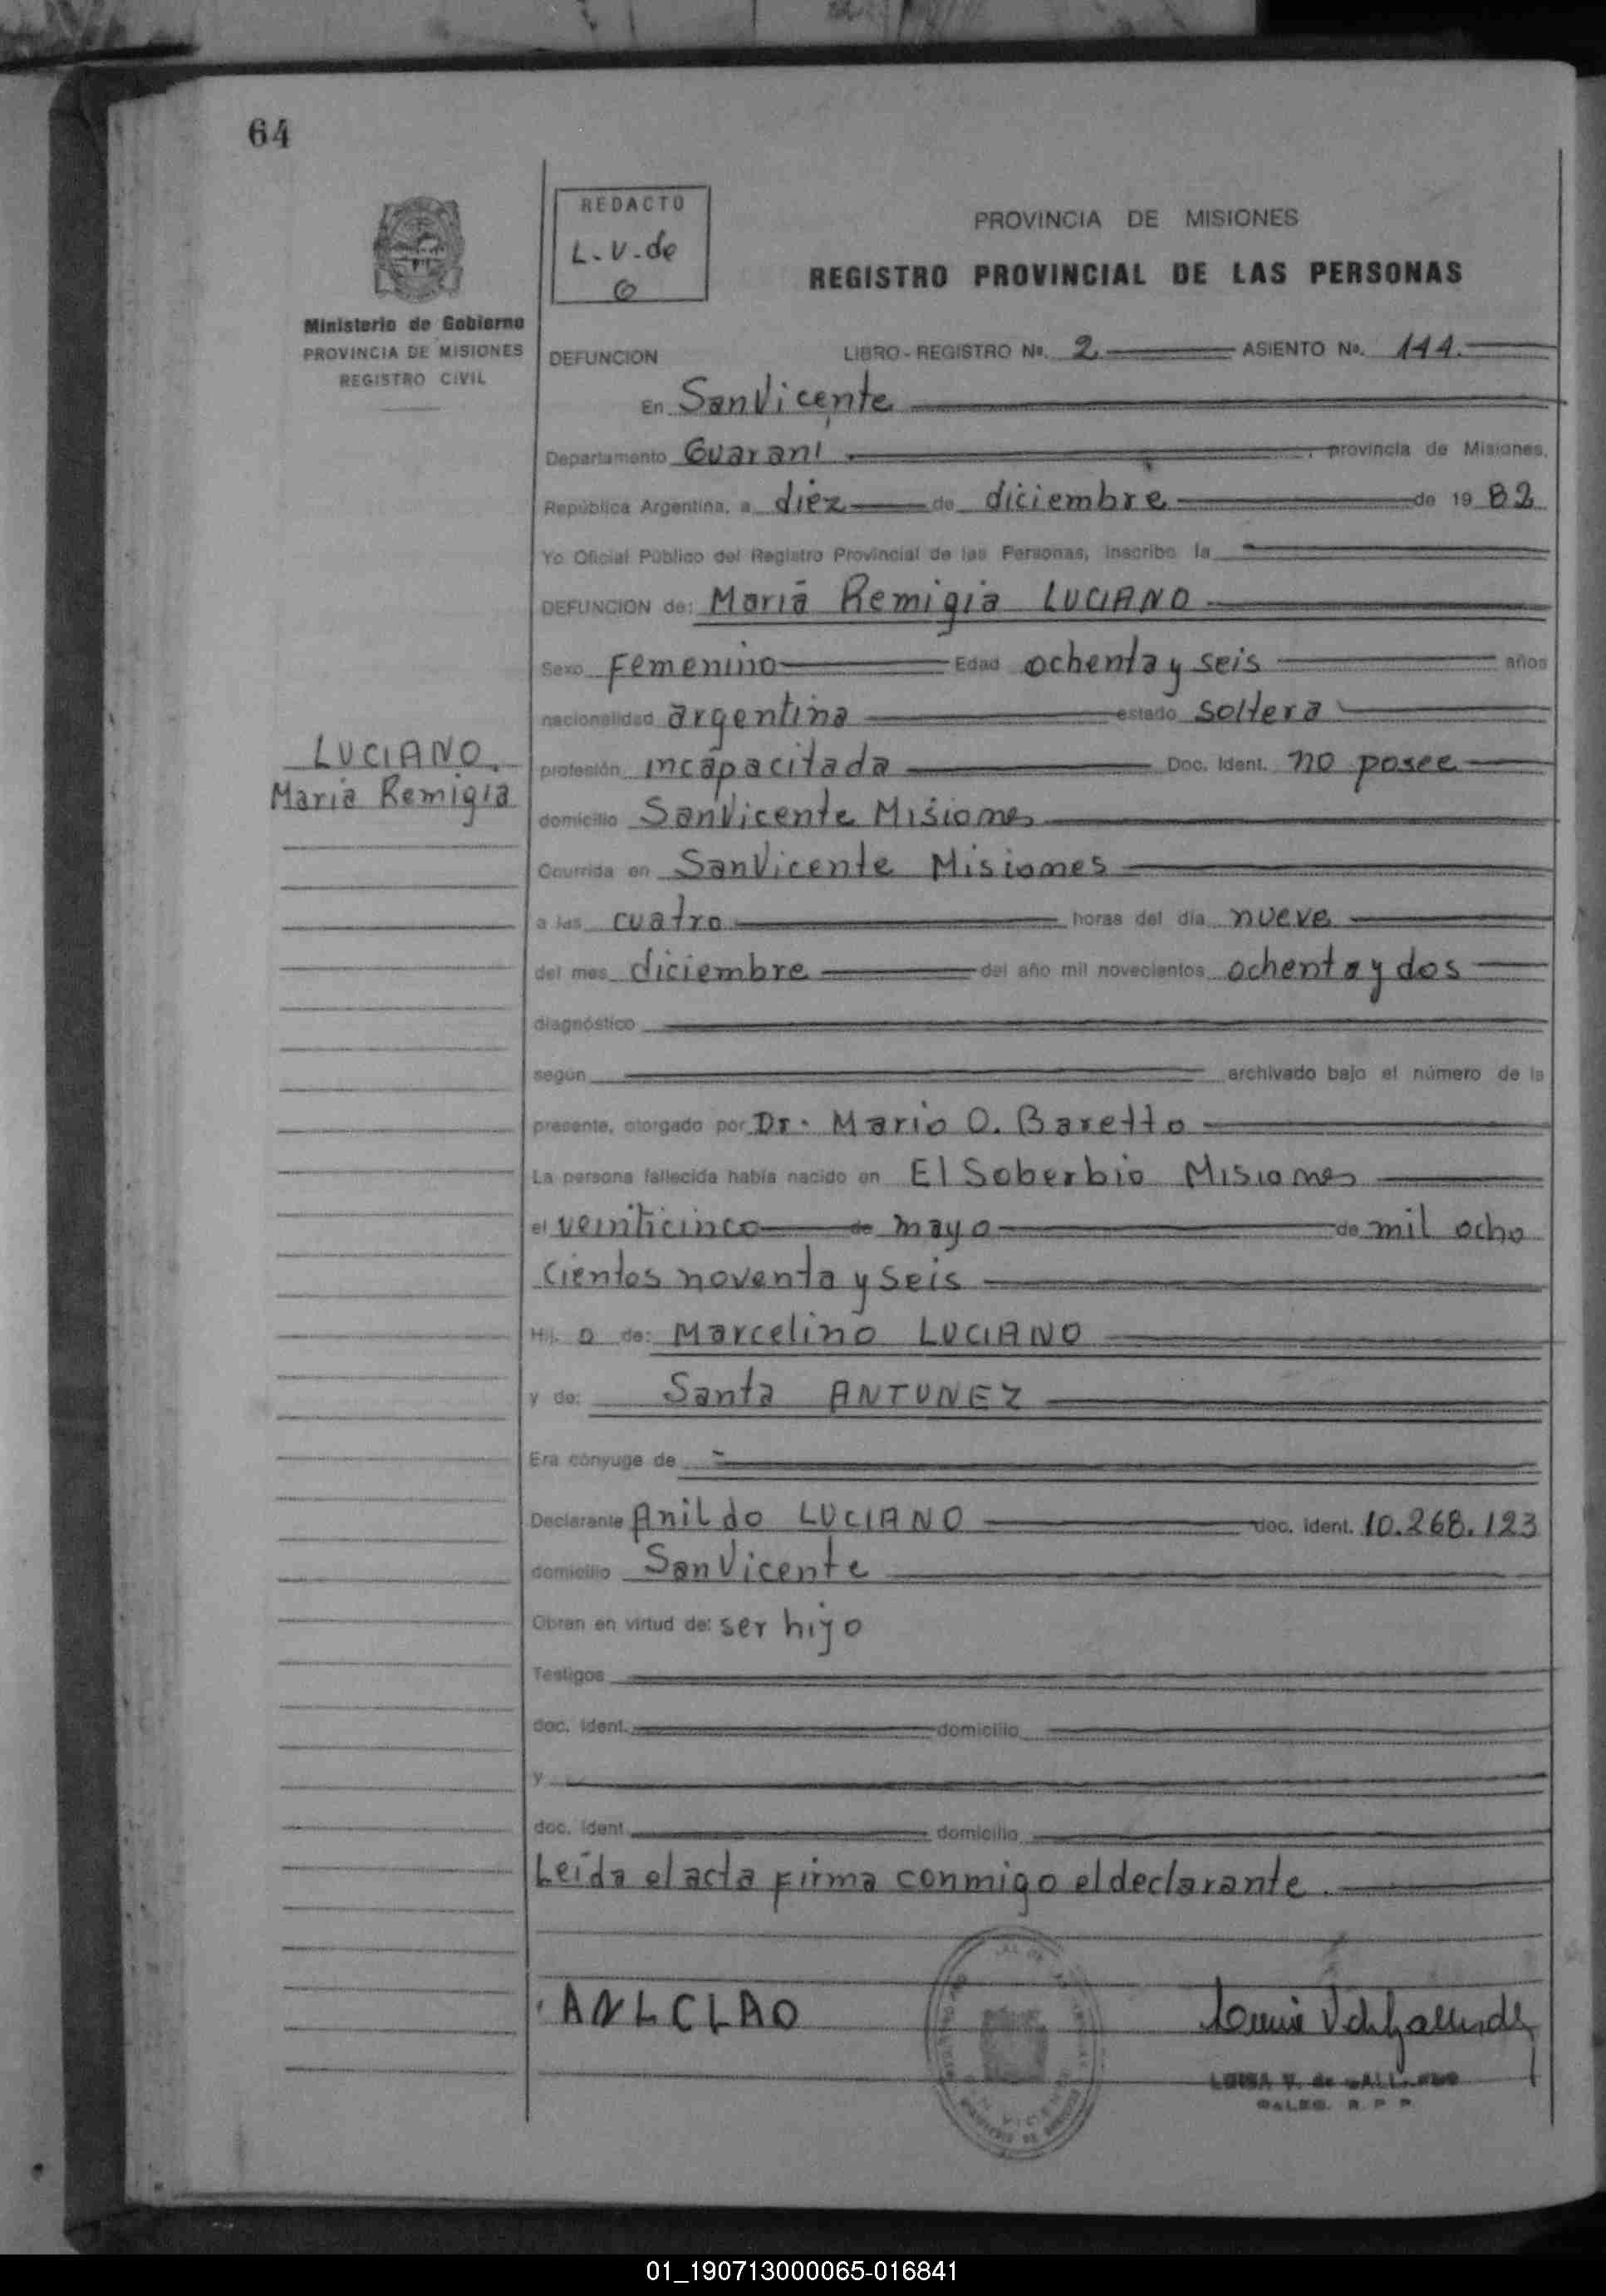 64
REDACTO
L. V. de
G
PROVINCIA DE MISIONES
REGISTRO PROVINCIAL DE LAS PERSONAS
Ministerio de Gobierno
PROVINCIA DE MISIONES
REGISTRO CIVIL
DEFUNCION LIBRO - REGISTRO No. 2 ASIENTO No. 144.
En San Vicente
Departamento Guarani, provincia de Misiones,
República Argentina, a diez de diciembre de 19 82
Yo Oficial Público del Registro Provincial de las Personas, inscribo la
DEFUNCION de: Maria Remigia LUCIANO
Sexo Femenino Edad ochenta y seis años
nacionalidad argentina estado soltera
LUCIANO,
Maria Remigia
profesión incapacitada Doc. Ident. no posee
domicilio San Vicente Misiones
Ocurrida en San Vicente Misiones
a las cuatro horas del día nueve
del mes diciembre del año mil novecientos ochenta y dos
diagnóstico
según archivado bajo el número de la
presente, otorgado por Dr. Mario O. Baretto
La persona fallecida había nacido en El Soberbio Misiones
el veinticinco de mayo de mil ocho
cientos noventa y seis
Hij. a de: Marcelino LUCIANO
y de: Santa ANTUNEZ
Era cónyuge de
Declarante Anildo LUCIANO doc. ident. 10.268.123
domicilio San Vicente
Obran en virtud de: ser hijo
Testigos
doc. ident. domicilio
y
doc. ident. domicilio
Leída el acta firma conmigo el declarante.
ANLCLAO
LUISA V. de GALLARDO
R P P
01_190713000065-016841